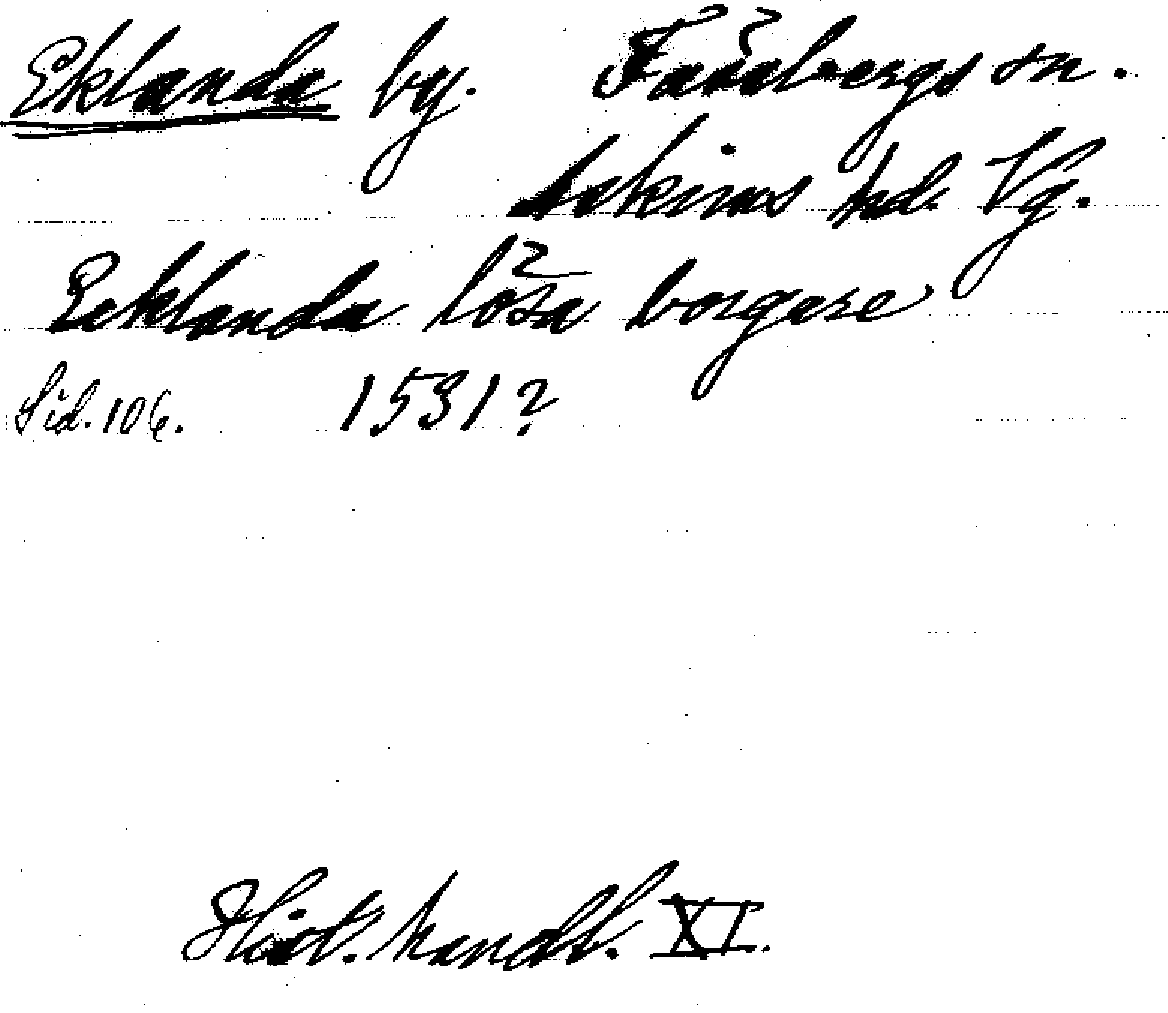 Eklanda by. Fässbergs sn.
Askims hd. Vg.
Ecklanda lösa borgere
Sid. 106. 1531?
Hist. handl. XI.